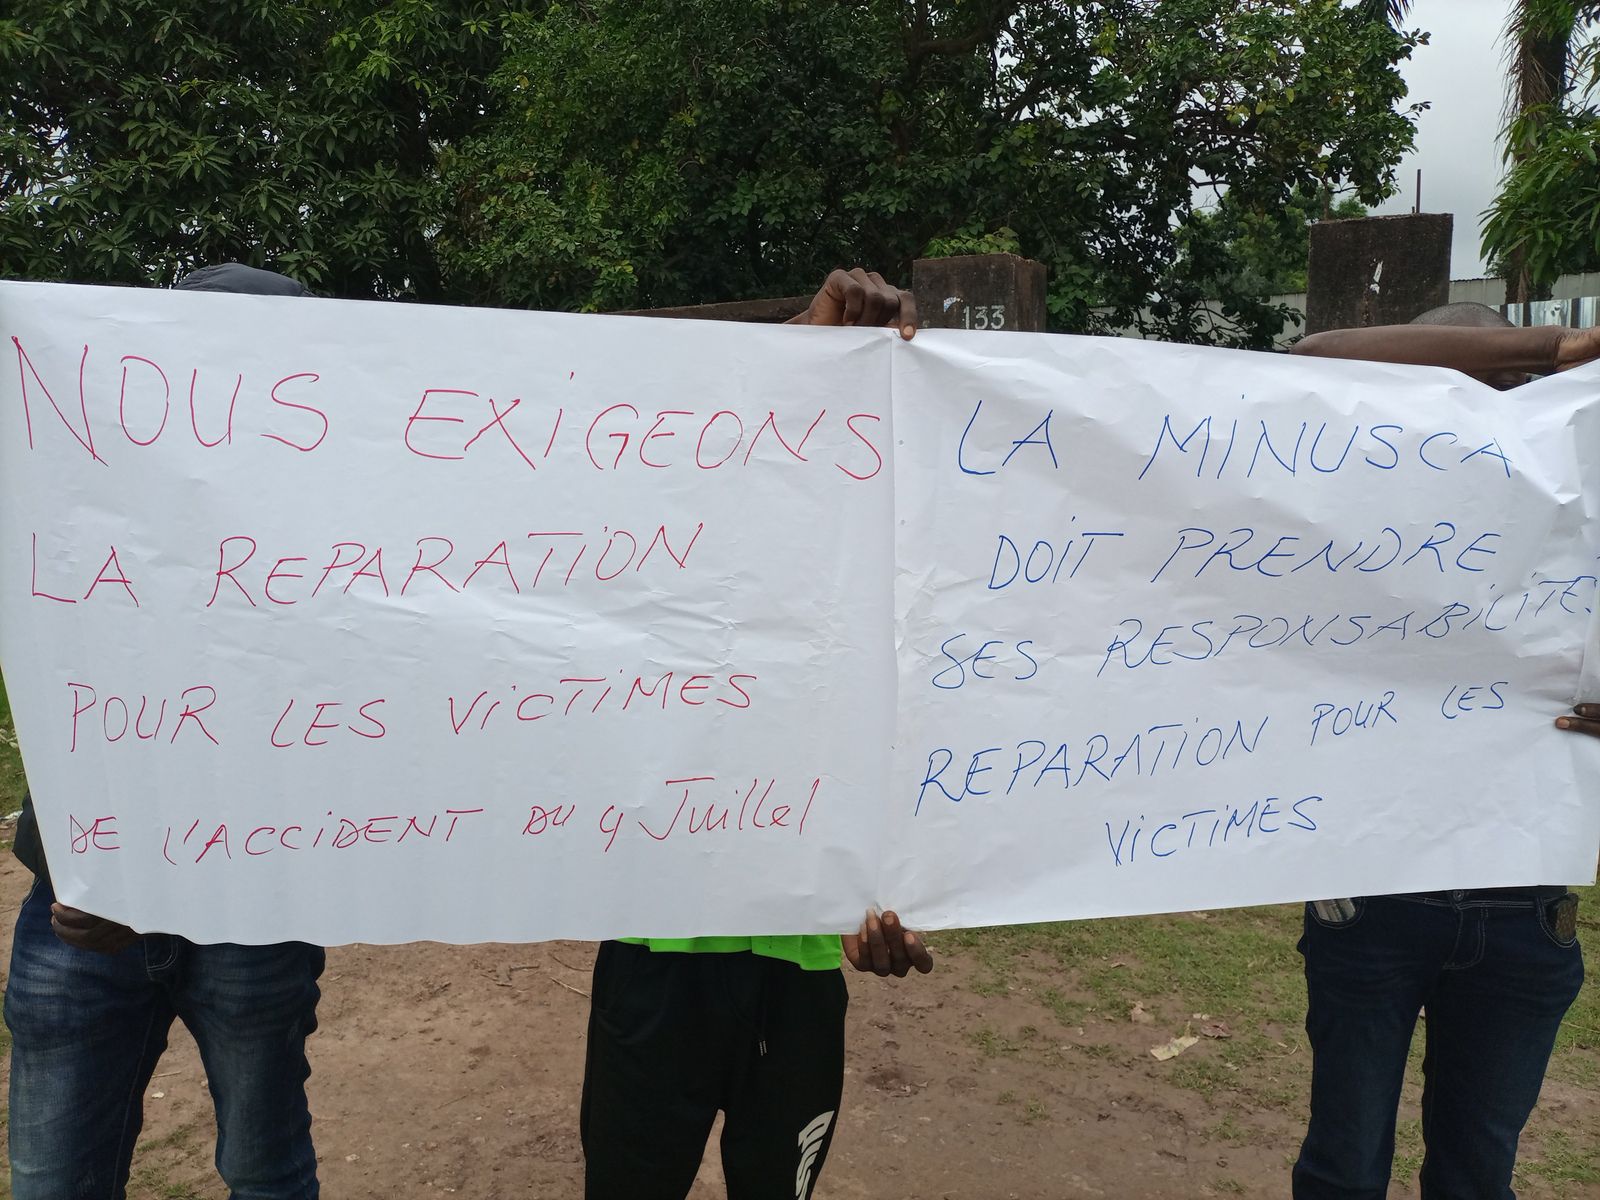 133
NOUS EXIGEONS
LA REPARATION
POUR LES VICTIMES
DE L'ACCIDENT DU 4 Juillel
LA MINUSCA
DOIT PRENDRE
SES RESPONSABILITES
REPARATION POUR LES
VICTIMES